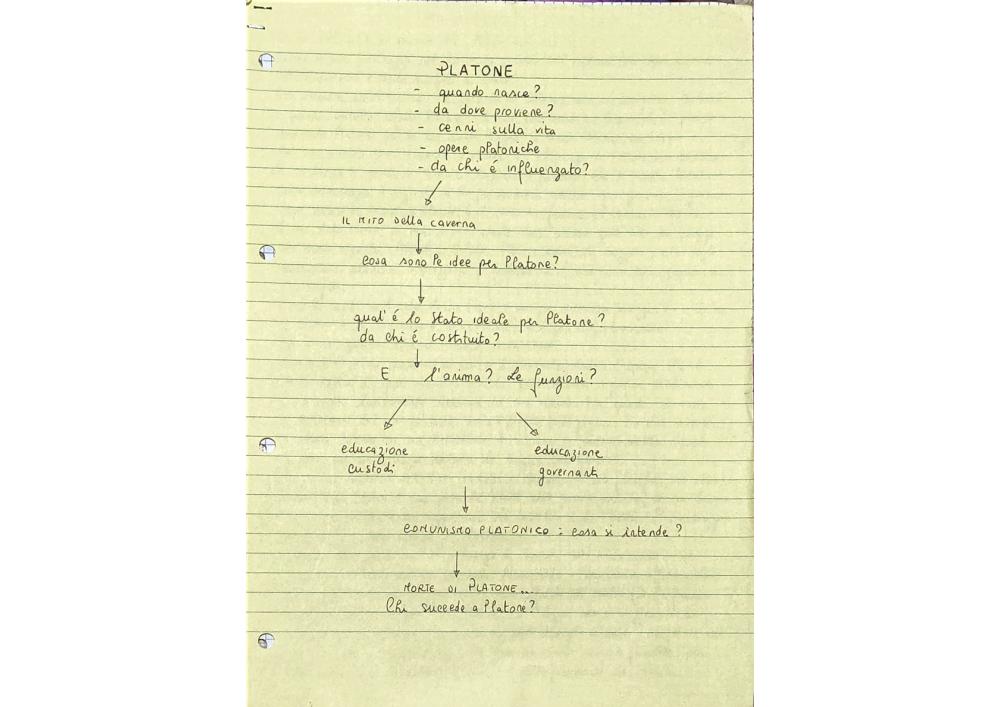 PLATONE
- quando nasce?
- da dove proviene?
- cenni sulla vita
- opere platoniche
- da chi é influenzato?
IL MITO della caverna
Cosa sono le idee per Platone?
qual'é lo Stato ideale per Platone?
da chi é costituito?
E l'anima? Le funzioni?
educazione custodi
educazione governanti
COMUNISMO PLATONICO: cosa si intende?
MORTE DI PLATONE...
Chi succede a Platone?